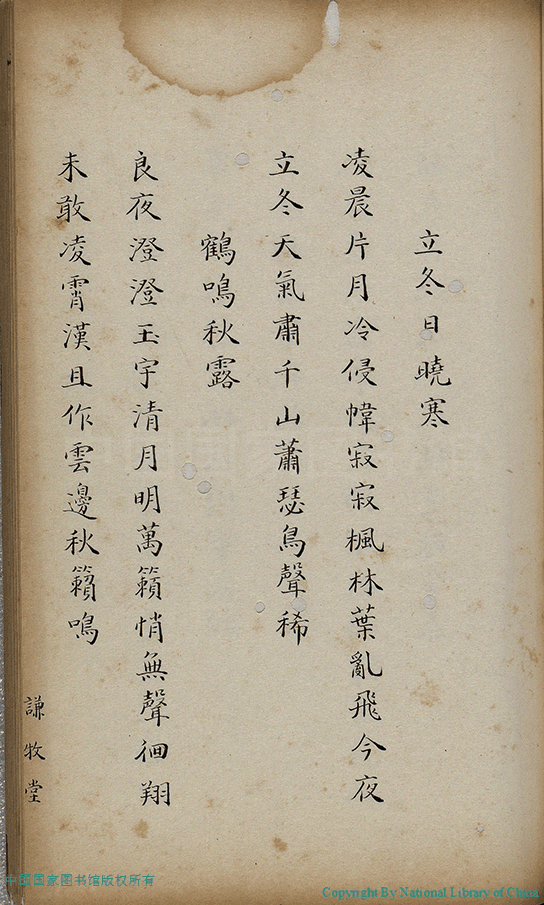 立冬日曉寒
凌晨片月冷侵幃寂寂楓林葉亂飛今夜
立冬天氣肅千山蕭瑟鳥聲稀
鶴鳴秋露
良夜澄澄玉宇清月明萬籟悄無聲徊翔
未敢凌霄漢且作雲邊秋籟鳴
謙牧堂
中国国家图书馆版权所有
Copyright By National Library of China